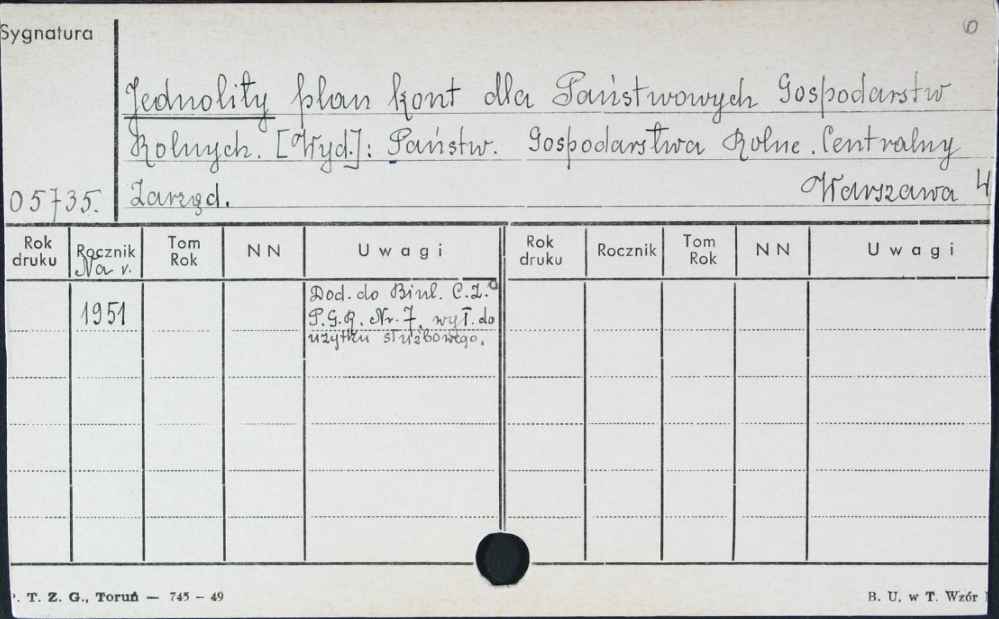 Sygnatura
6
Jednolity plan kont dla Państwowych Gospodarstw
Rolnych. [Wyd.]: Państw. Gospodarstwa Rolne. Centralny
05735. Zarząd. Warszawa 4
Rok druku Rocznik Tom Rok NN Uwagi Rok druku Rocznik Tom Rok NN Uwagi
Na r.
1951 Dod. do Biul. C.Z.
P.G.R. Nr. 7, wył. do
użytku służbowego.
. T. Z. G., Toruń — 745 – 49 B. U. w T. Wzór